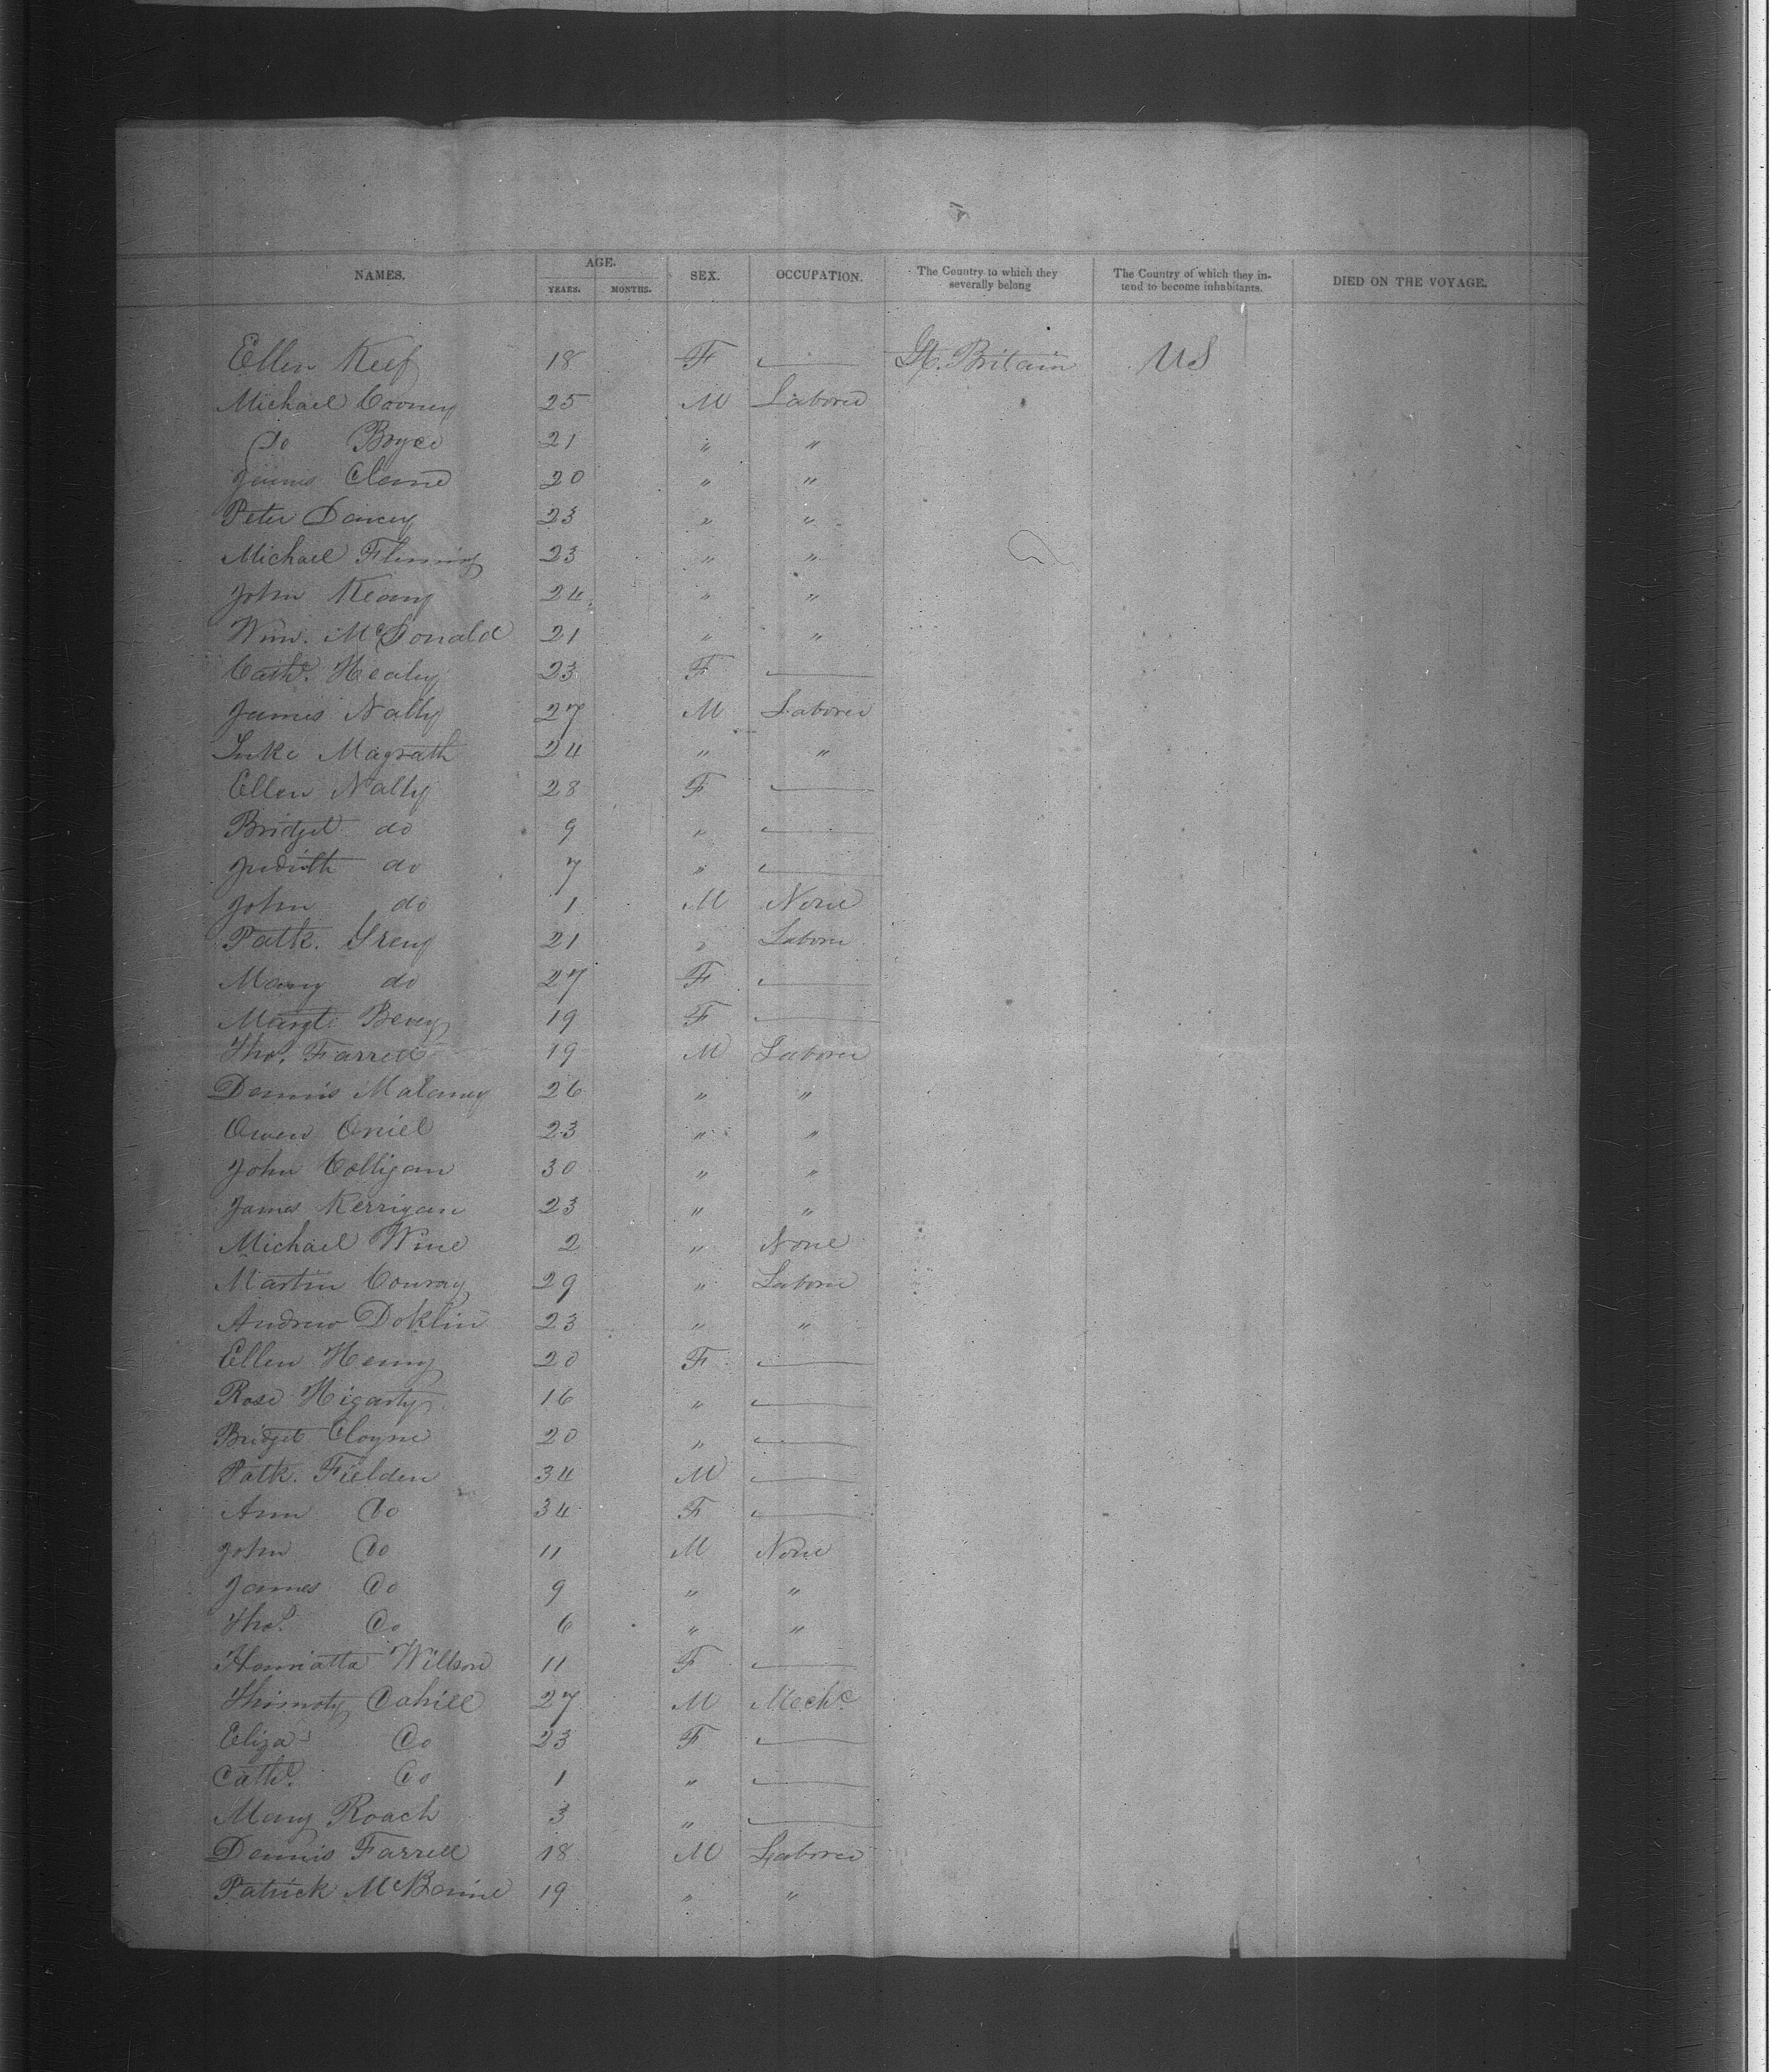 NAMES. AGE. YEARS. MONTHS. SEX. OCCUPATION. The Country to which they severally belong The Country of which they intend to become inhabitants. DIED ON THE VOYAGE.
Ellen Keef 18 F — Gt. Britain US
Michael Cooney 25 M Laborer
do Bryce 21 " "
James 20 " "
Peter Dancey 23 " "
Michael Fleming 23 " "
John Keany 24 " "
Wm. McDonald 21 " "
Cathe. Healey 23 F —
James Nally 27 M Laborer
Luke Magrath 24 " "
Ellen Nally 28 F —
Bridget do 9 " —
Judith do 7 " —
John do 1 M None
Patk. 21 " Laborer
Mary do 27 F —
Margt. 19 F —
Thos. Farrell 19 M Laborer
Dennis Malaney 26 " "
Owen Oniel 23 " "
John Colligan 30 " "
James Kerrigan 23 " "
Michael Wine 2 " None
Martin Conray 29 " Laborer
Andrew Doklin 23 " "
Ellen Henry 20 F —
Rose Higarty 16 " —
Bridget Cloyne 20 " —
Patk. Fielden 34 M —
Ann Do 34 F —
John Do 11 M None
James Do 9 " "
Thos. Do 6 " "
Henriatta Willson 11 F —
Thimoty Cahill 27 M Mechc.
Eliza Do 23 F —
Cathe. Do 1 " —
Mary Roach 3 " —
Dennis Farrell 18 M Laborer
Patrick 19 " "